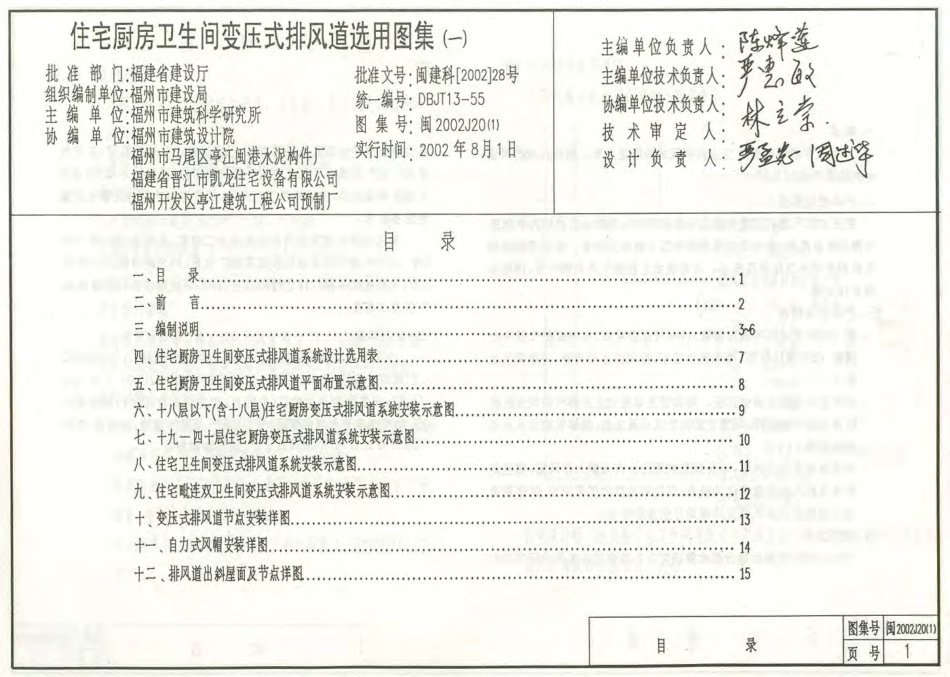 住宅厨房卫生间变压式排风道选用图集(一)
批准部门:福建省建设厅
组织编制单位:福州市建设局
主编单位:福州市建筑科学研究所
协编单位:福州市建筑设计院
福州市马尾区亭江闽港水泥构件厂
福建省晋江市凯龙住宅设备有限公司
福州开发区亭江建筑工程公司预制厂
批准文号:闽建科[2002]28号
统一编号:DBJT13-55
图集号:闽2002J20(1)
实行时间:2002年8月1日
主编单位负责人:
主编单位技术负责人:
协编单位技术负责人:
技术审定人: 林立棠
设计负责人:
目 录
一、目 录 1
二、前 言 2
三、编制说明 3-6
四、住宅厨房卫生间变压式排风道系统设计选用表 7
五、住宅厨房卫生间变压式排风道平面布置示意图 8
六、十八层以下(含十八层)住宅厨房变压式排风道系统安装示意图 9
七、十九—四十层住宅厨房变压式排风道系统安装示意图 10
八、住宅卫生间变压式排风道系统安装示意图 11
九、住宅毗连双卫生间变压式排风道系统安装示意图 12
十、变压式排风道节点安装详图 13
十一、自力式风帽安装详图 14
十二、排风道出斜屋面及节点详图 15
目 录
图集号 闽2002J20(1)
页号 1